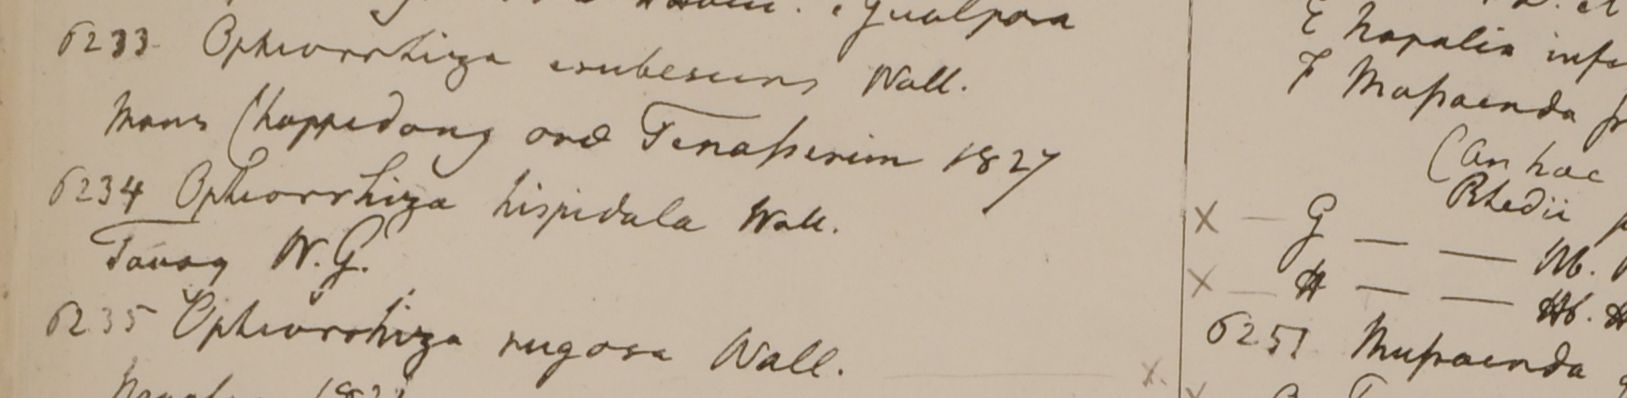 Gualpara
6233 Ophiorrhiza erubescens Wall.
Mons Chappedong orae Tenasserim 1827
6234 Ophiorrhiza hispidula Wall.
Tavoy W.G.
6235 Ophiorrhiza rugosa Wall.
E Napalia
F Mussaenda
(An hac
Rhedii
X — G — —
X — H — — Hb.
6251 Mussaenda